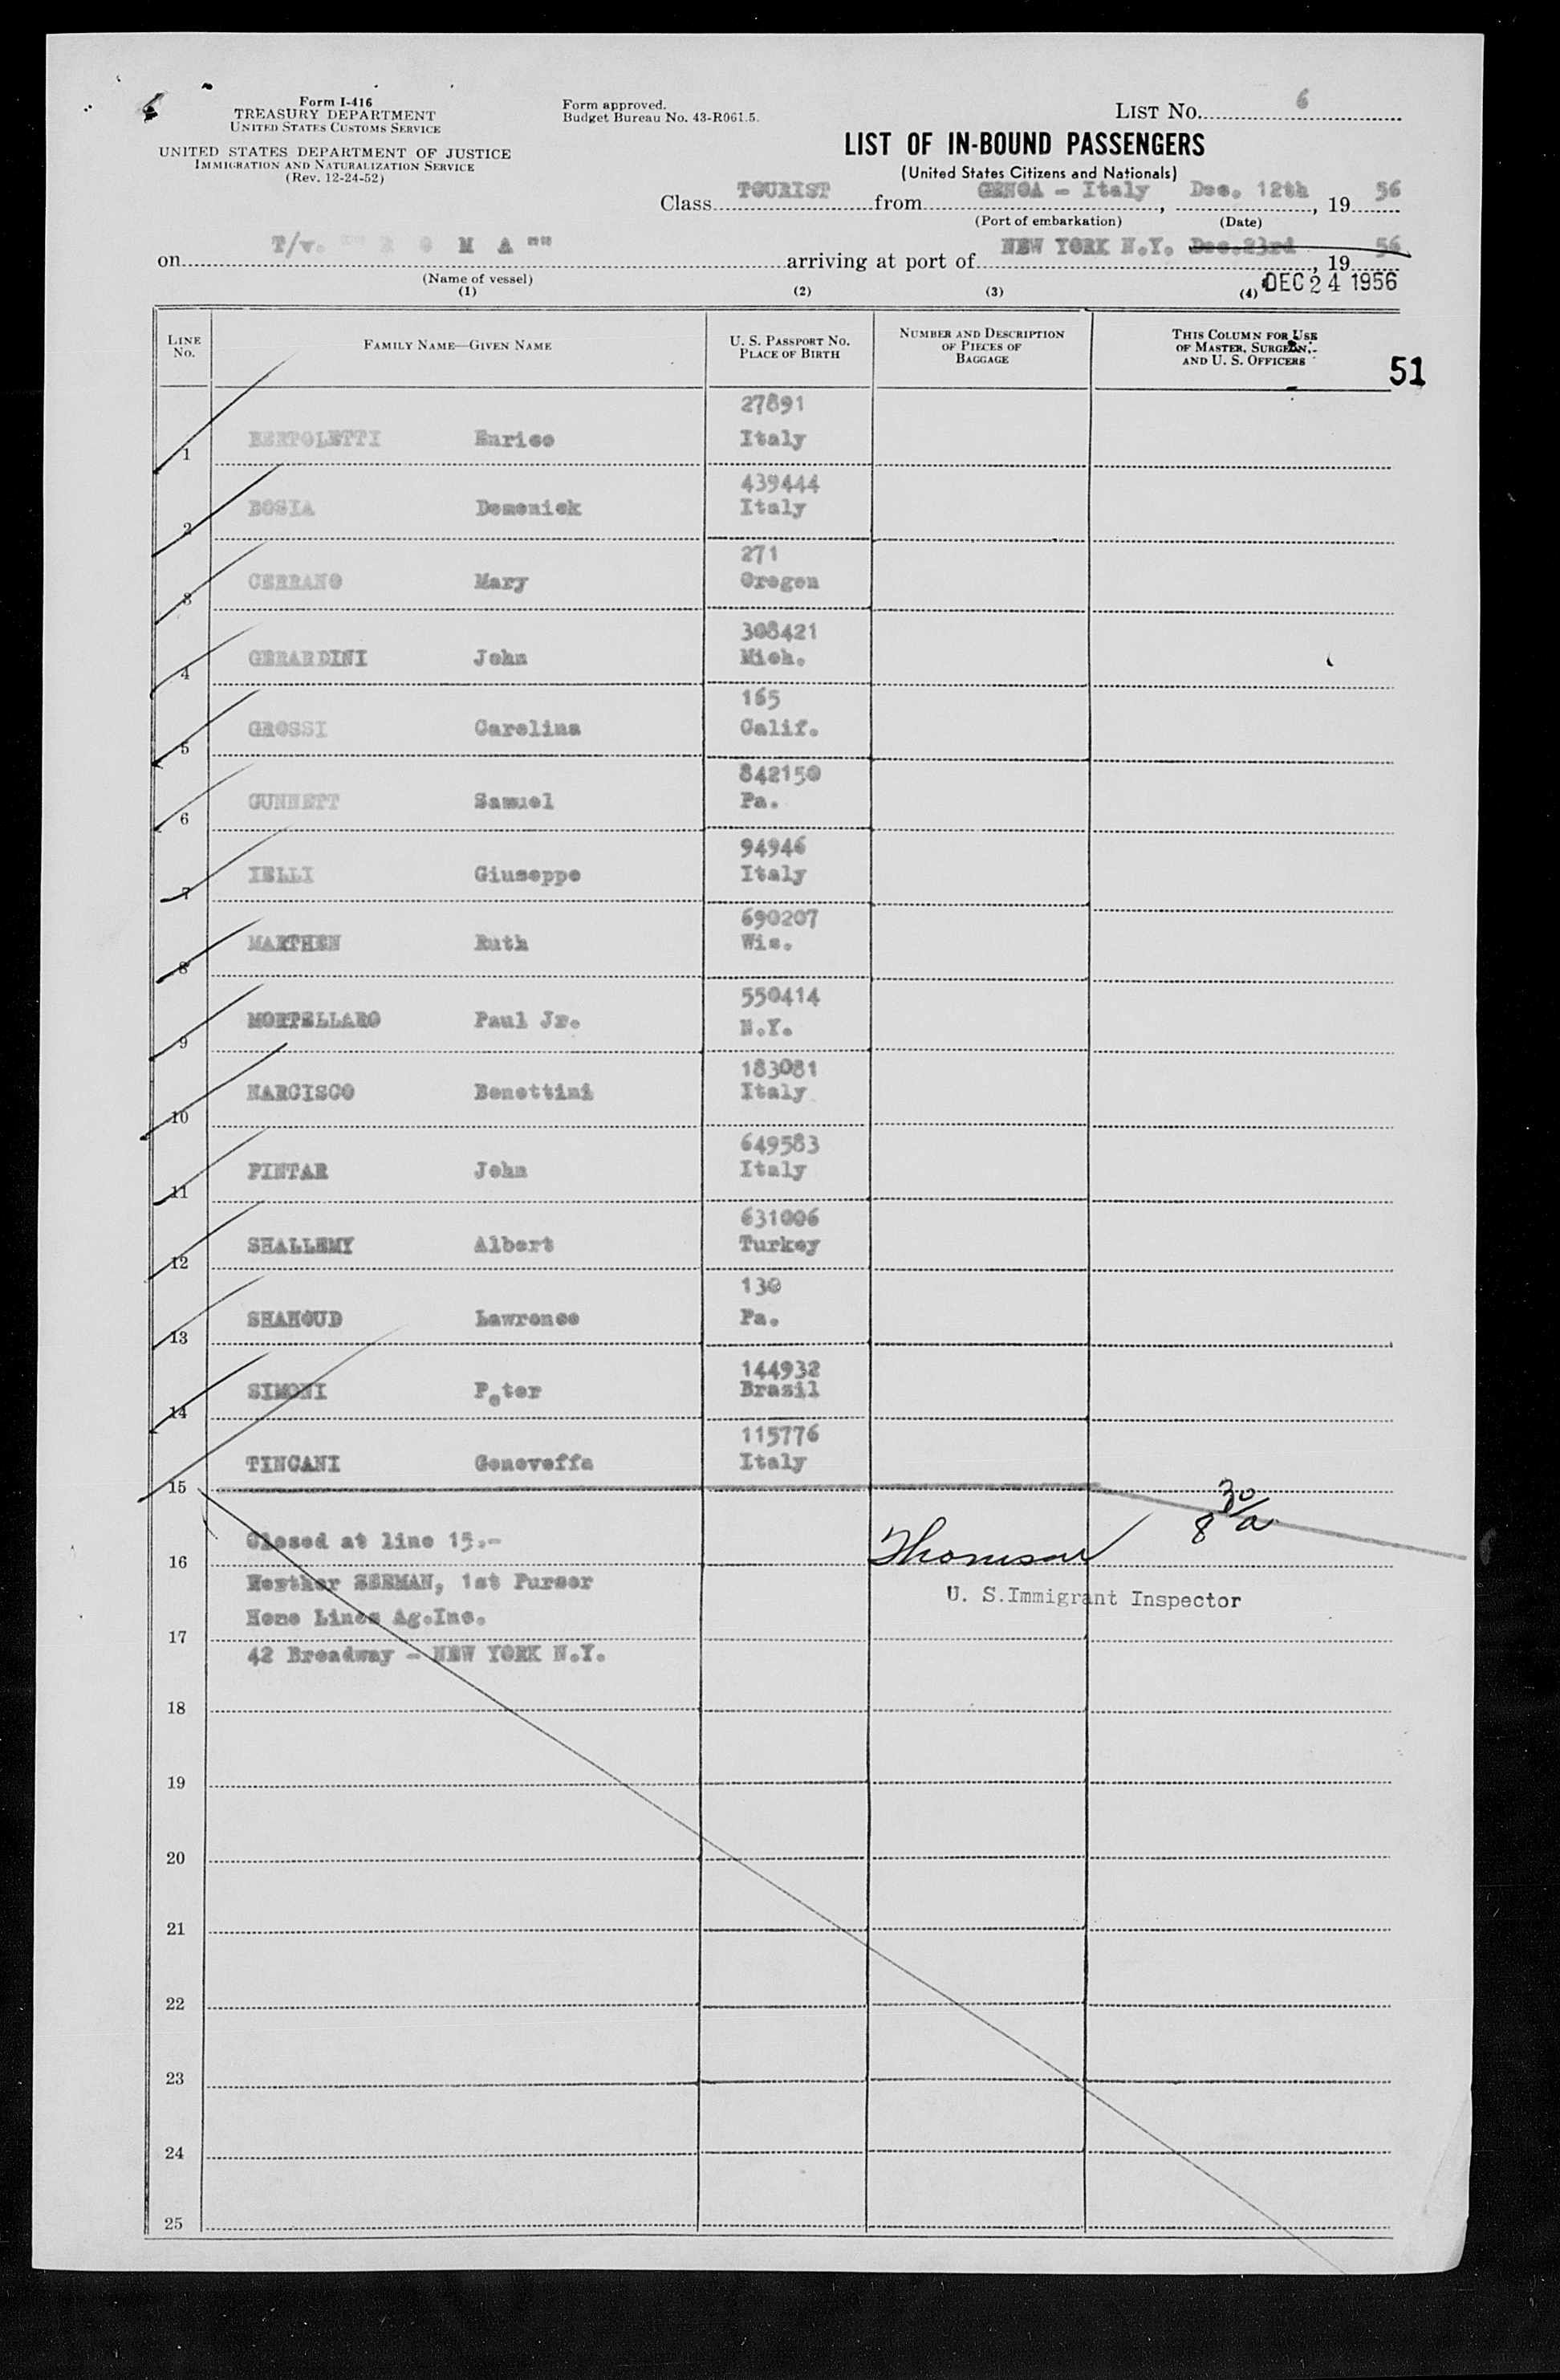 Form I-416
TREASURY DEPARTMENT
UNITED STATES CUSTOMS SERVICE
UNITED STATES DEPARTMENT OF JUSTICE
IMMIGRATION AND NATURALIZATION SERVICE
(Rev. 12-24-52)
Form approved.
Budget Bureau No. 43-R061.5.
LIST NO. 6
LIST OF IN-BOUND PASSENGERS
(United States Citizens and Nationals)
Class TOURIST from GENOA - Italy, Dec. 12th, 19 56
(Port of embarkation) (Date)
on T/v. "" R O M A "" arriving at port of NEW YORK N.Y. Dec.23rd, 19 56
(Name of vessel)
DEC 24 1956
(1) (2) (3) (4)
LINE NO. FAMILY NAME—GIVEN NAME U. S. PASSPORT NO. PLACE OF BIRTH NUMBER AND DESCRIPTION OF PIECES OF BAGGAGE THIS COLUMN FOR USE OF MASTER, SURGEON, AND U. S. OFFICERS
51
27891
1 BERTOLETTI Enrico Italy
439444
2 BOSIA Domenick Italy
271
3 CERRANO Mary Oregon
308421
4 GERARDINI John Mich.
165
5 GROSSI Carolina Calif.
842150
6 GUNNETT Samuel Pa.
94946
7 IELLI Giuseppe Italy
690207
8 MARTHEN Ruth Wis.
550414
9 MORTELLARO Paul Jr. N.Y.
183081
10 NARCISCO Benettini Italy
649583
11 PINTAR John Italy
631006
12 SHALLEMY Albert Turkey
130
13 SHAHOUD Lawrence Pa.
144932
14 SIMONI Peter Brazil
115776
15 TINCANI Genoveffa Italy
30
8/a
Closed at line 15.-
16 Thomson
SERMAN, 1st Purser
U. S.Immigrant Inspector
Home Lines Ag.Inc.
17
42 Broadway - NEW YORK N.Y.
18
19
20
21
22
23
24
25